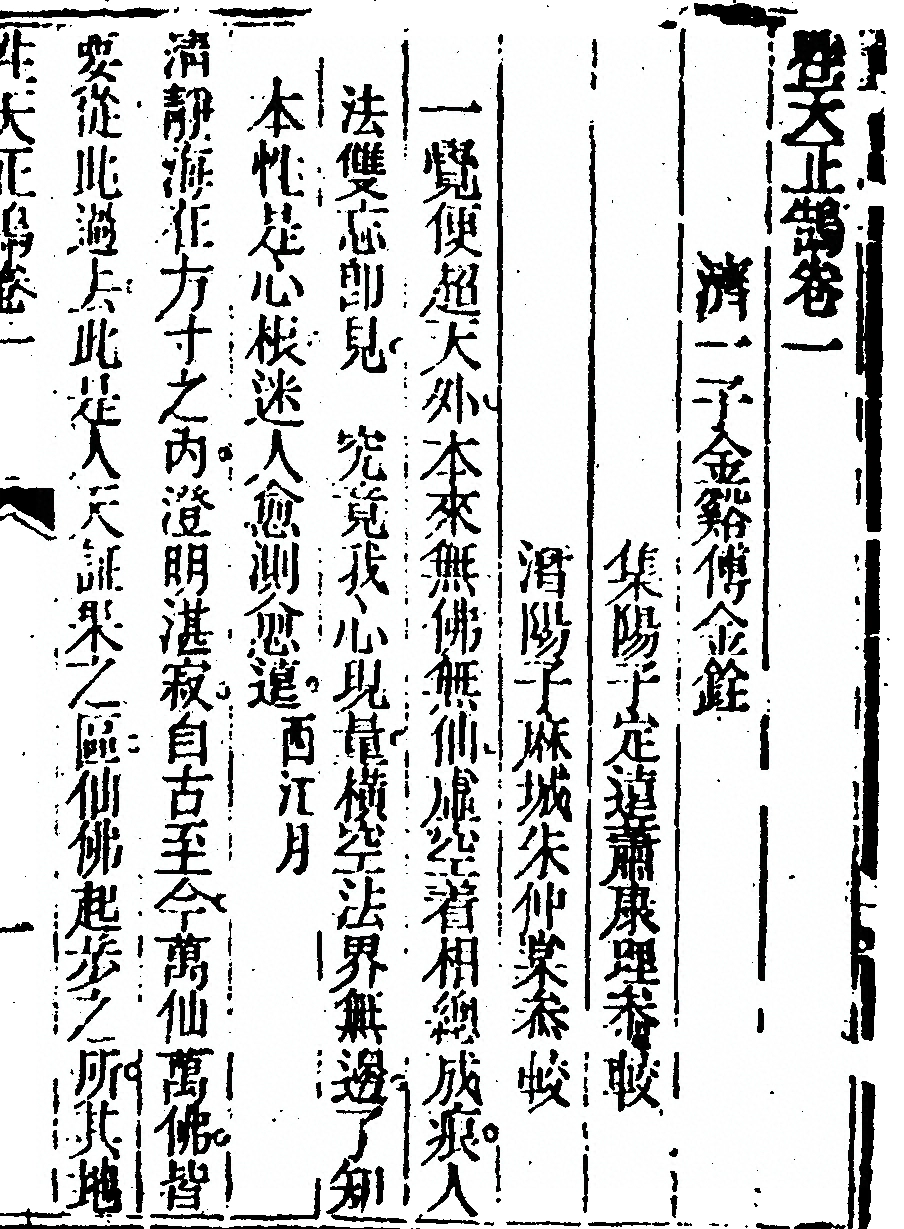 登天正鵠卷一
濟一子金谿傅金銓
集陽子定遠蕭康理叅較
濳陽子麻城朱仲棠叅較
一覺便超天外本來無佛無仙虛空着相總成痕人
法雙忘卽見　究竟我心現量橫空法界無邊了知
本性是心根迷人愈測愈遠西江月
清靜海在方寸之內澄明湛寂自古至今萬仙萬佛皆
要從此過去此是人天証果之區仙佛起步之所其地
天正鵠卷一
一